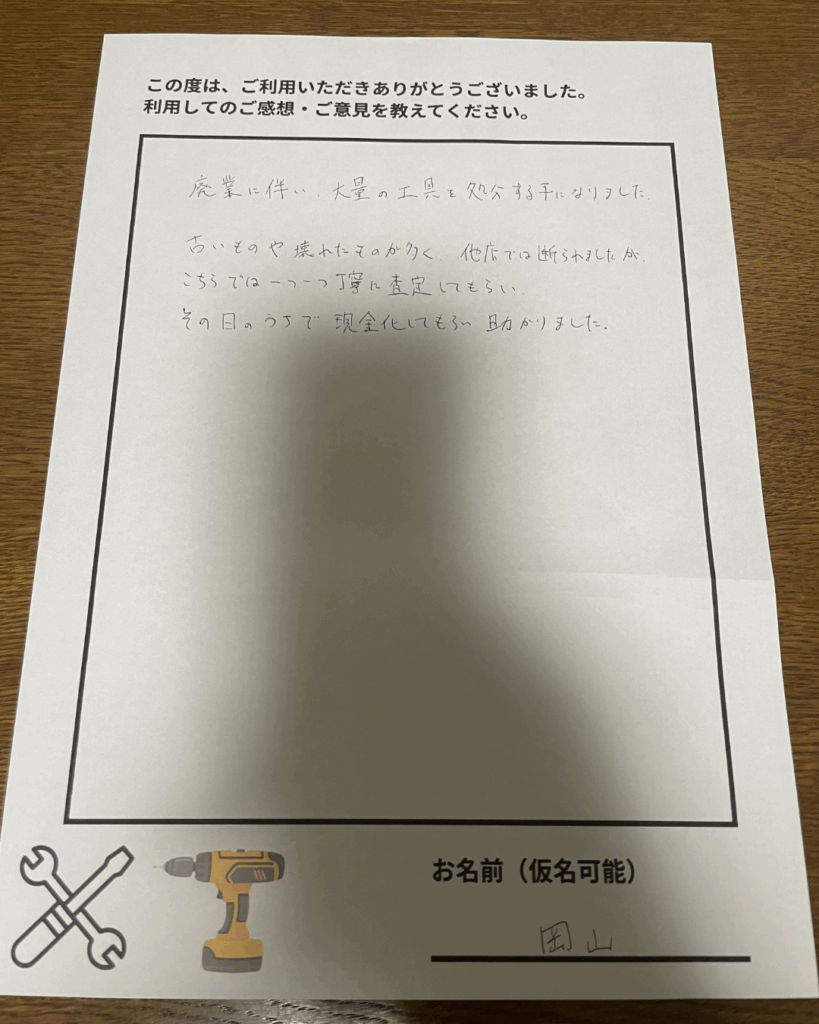 この度は、ご利用いただきありがとうございました。
利用してのご感想・ご意見を教えてください。
廃業に伴い、大量の工具を処分する手になりました。
古いものや壊れたものが多く、他店では断られましたが、
こちらでは一つ一つ丁寧に査定してもらい、
その日のうちで現金化してもらい助かりました。
お名前（仮名可能）
岡山